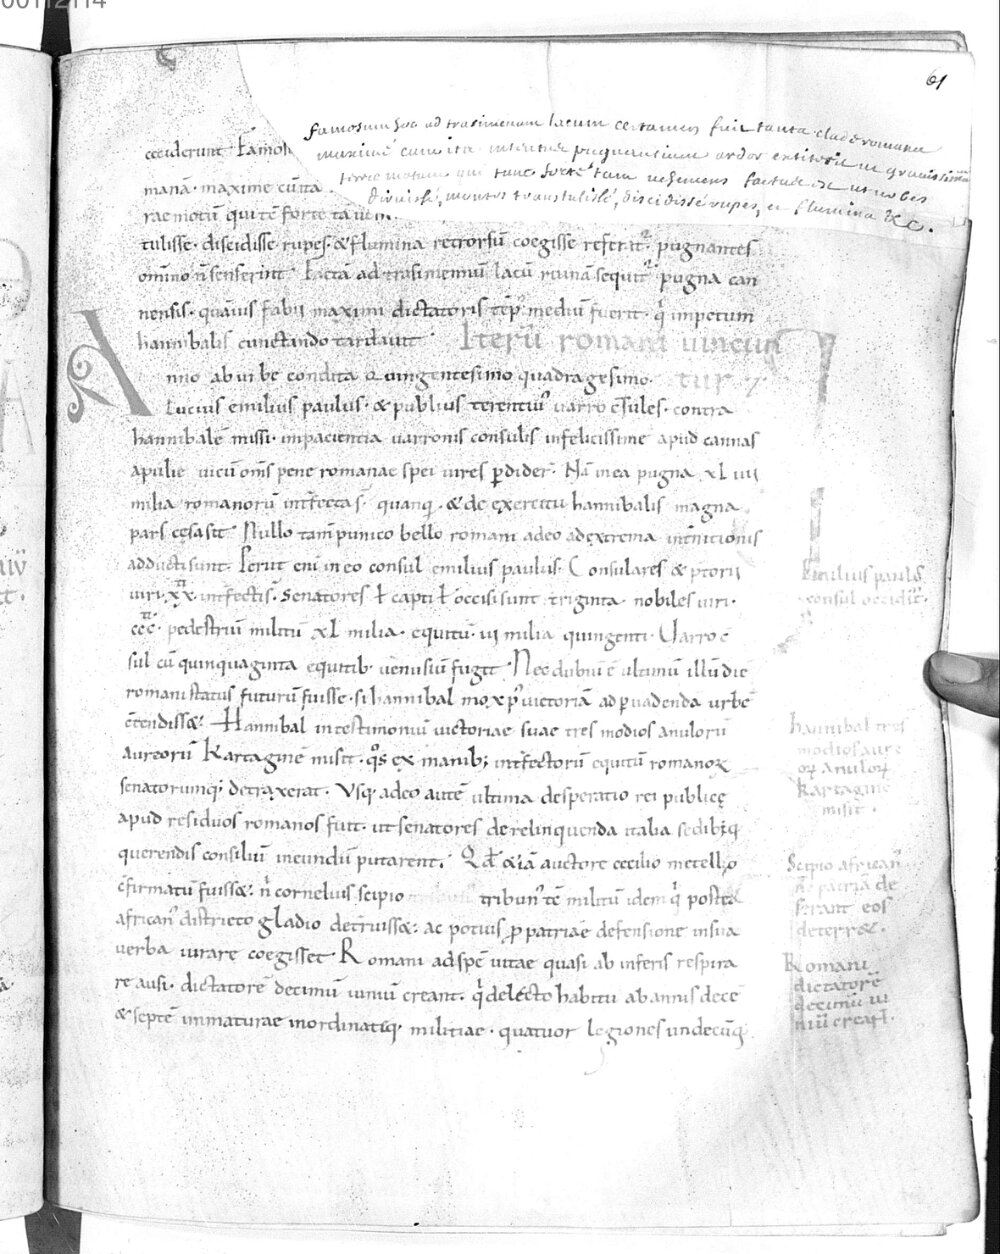 00112114
61
famosum hoc ad trasimenum lacum certamen fuit tanta clade romana
maxime cum ita intentus pugnantium ardor extiterit ut gravissimu
terre motum qui tunc forte tam vehemens factus est ut urbes
diruisse, montes transtulisse, discidisse rupes, et flumina &c.
ceciderunt famos
mana maxime cū ita
rae motū qui tē forte ta uem
tulisse · discidisse rupes · & flumina retrorsū coegisse referit᷑ pugnantes
omīno n̄ senserint Factā ad trasimenū lacū ruinā sequit᷑ pugna can
nensis · quāuis fabii maximi dictatoris tēp᷒ mediū fuerit · q̍ impetum
hannibalis cunctando tardauit Iterū romani uincun
Anno ab urbe condita quingentesimo quadragesimo tur
Lucius emilius paulus · & publius terentiu᷒ uarro c̄sules · contra
hannibalē missi · impacientia uarronis consulis infelicissime apud cannas
apulie uicū om̄s pene romanae spei uires ꝑdider̄ · Nā in ea pugna xL iiii
milia romanorū int̄fecta s̄ · quanq̄ · & de exercitu hannibalis magna
pars cęsa sit Nullo tam̄ punico bello romani adeo ad extrema int̄nitionis
adducti sunt · Perut eni in eo consul emilius paulus · Consulares & p̄torii
uiri · xx · int̄fecti s̄ · Senatores ł capti ł occisi sunt triginta · nobiles uiri ·
ccc · pedestriū militū xL milia · equitū · iii milia quingenti · Uarro c̄
sul cū quinquaginta equitib᷒ uenusiū fugit Nec dubiū ē ultimū illū diē
romani status futurū fuisse · si hannibal mox p᷒ uictoriā ad ꝑuadendā urbē
c̄tendissæ · Hannibal in testimoniū uictoriae suae tres modios anulorū
aureorū Kartaginē misit · q᷒s ex manib; int̄fectorū equitū romanoꝝ
senatorumq; detraxerat · Usq; adeo autē ultima desperatio rei publicę
apud residuos romanos fuit · ut senatores de relinquenda italia sedibꝫq
querendis consiliū ineundū putarent · Qđ & iā auctore cecilio metello
c̄firmatū fuissæ · n̄ cornelius scipio tribun᷒ tē militū idem q̍ postea
african᷒ districto gladio det̄ruissæ · ac potius ꝓ patriae defensione in sua
uerba iurare coegisset Romani ad spē uitae quasi ab inferis respira
re ausi · dictatorē decimū iuniū creant · q̍ delecto habitu ab annis decē
& septē immaturae inordinatęq; militiae · quatuor legiones undecūq;
Emilius paulus
consul occidit᷑ ·
hannibal tres
modios aure
oꝝ anuloꝝ
kartagine
misit ·
Scipio african᷒
n̄ patriā de
serant eos
deterræ ·
Romani
dictatorē
decimū iu
niū creant ·